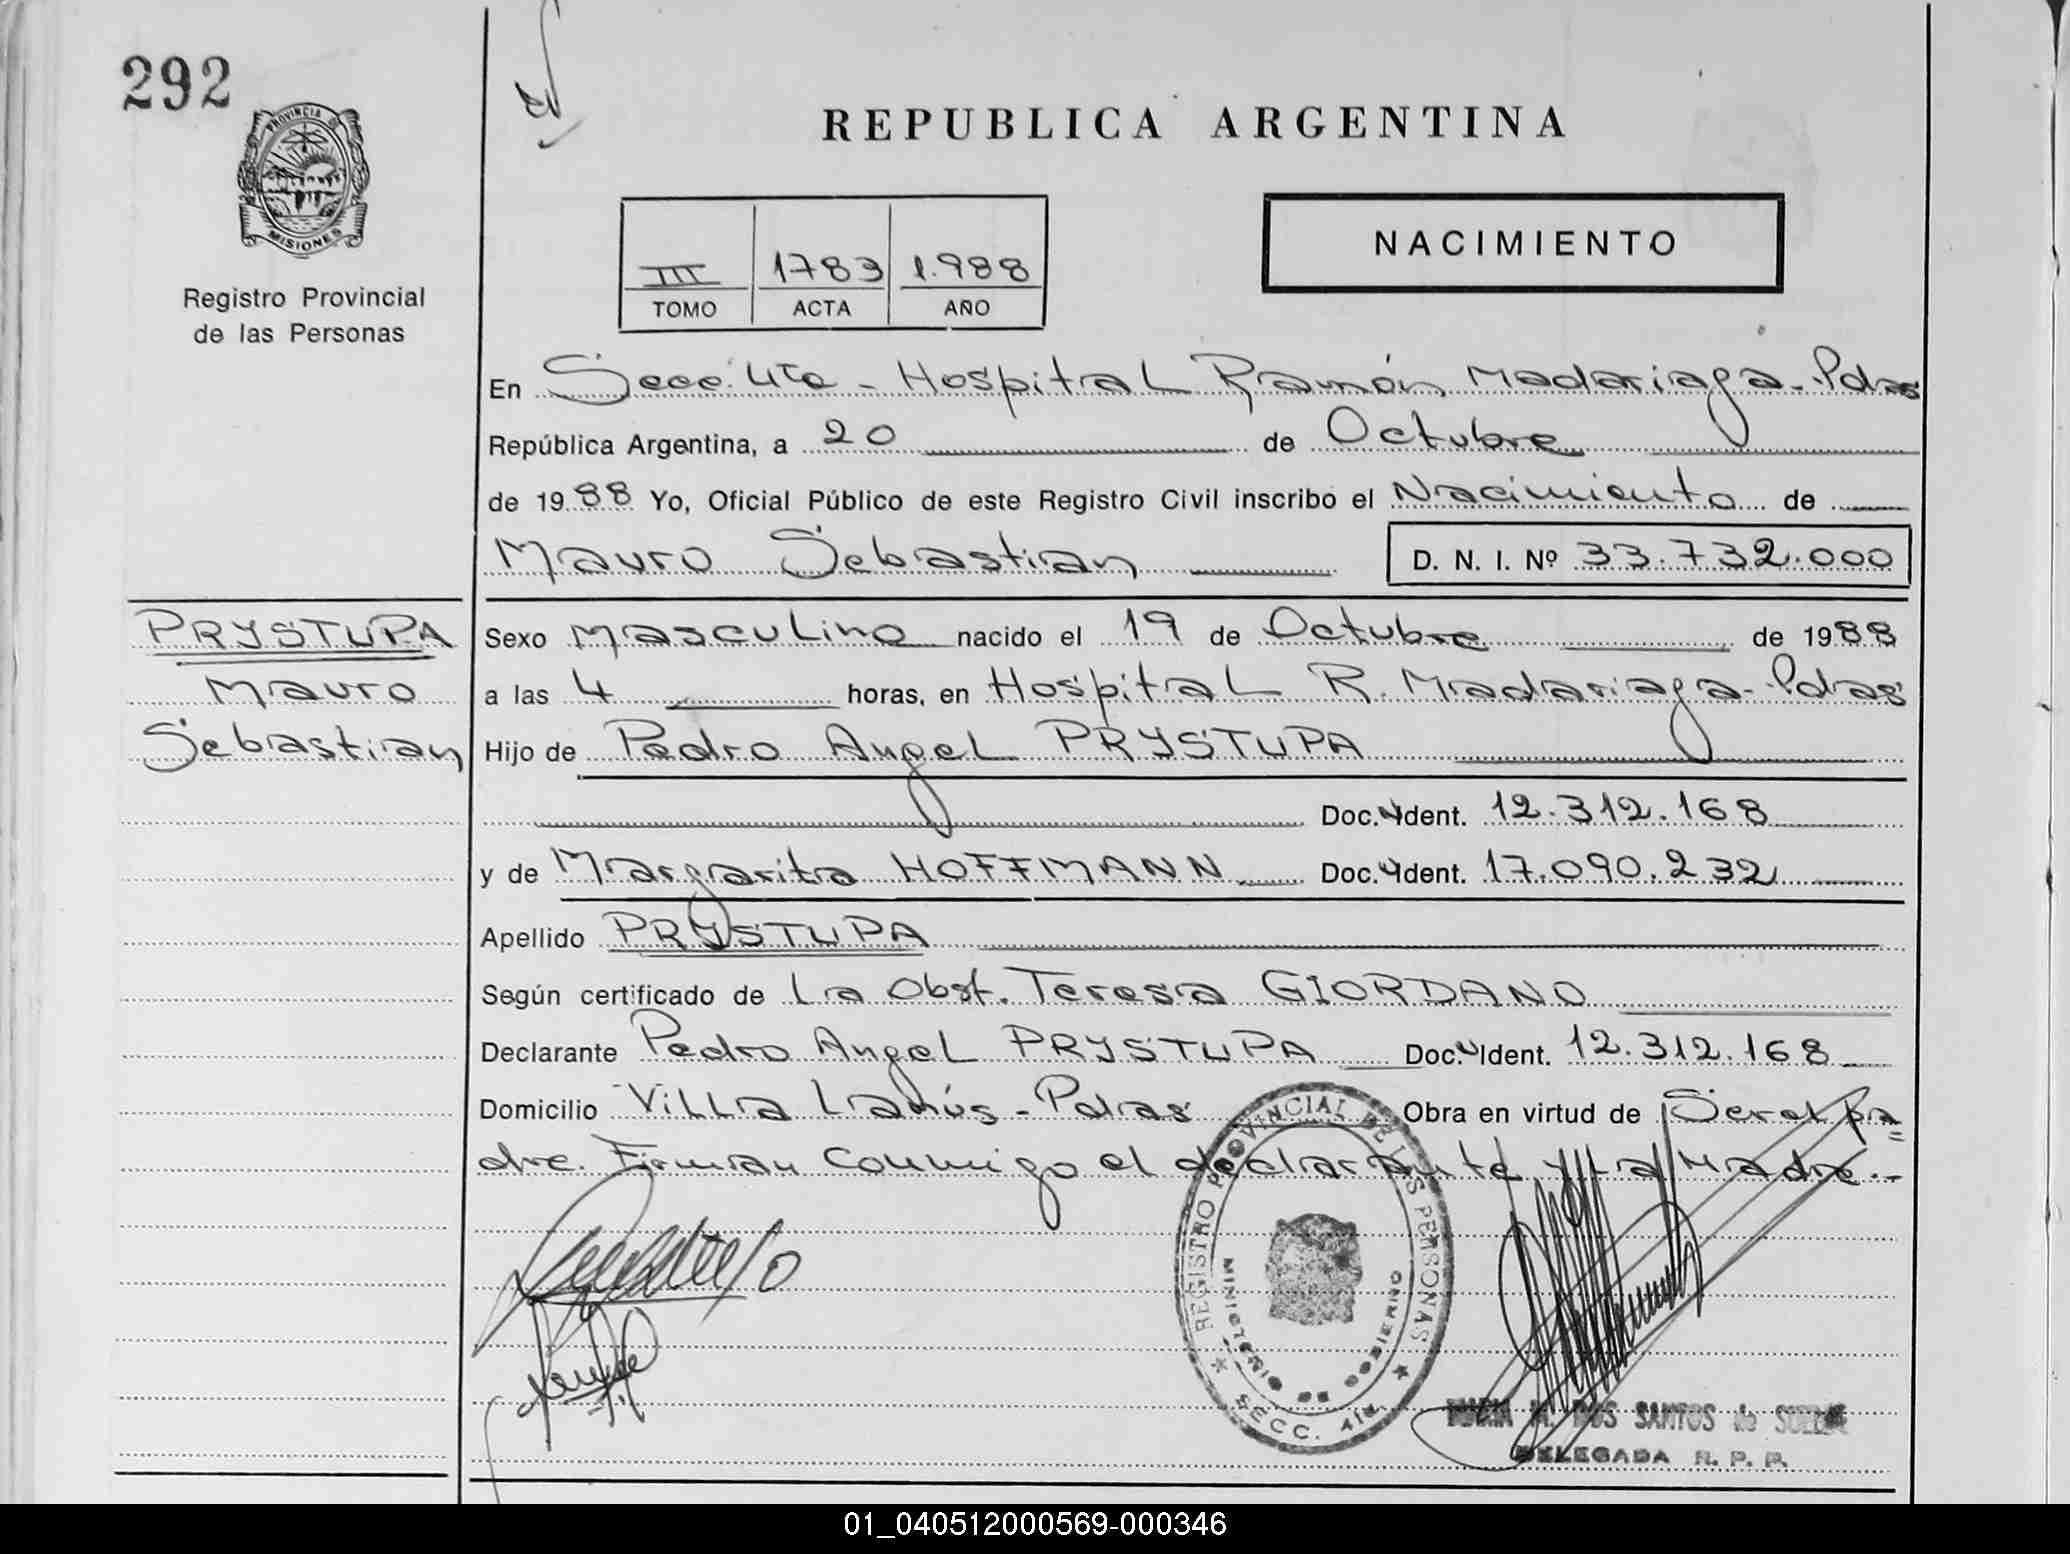 292
PROVINCIA DE
MISIONES
Registro Provincial
de las Personas
REPUBLICA ARGENTINA
III 1783 1.988
TOMO ACTA AÑO
NACIMIENTO
En Secc. 4ta - Hospital Ramón Madariaga - Pdas
República Argentina, a 20 de Octubre
de 1988 Yo, Oficial Público de este Registro Civil inscribo el Nacimiento de
Mauro Sebastian D. N. I. Nº 33.732.000
PRYSTUPA
Mauro
Sebastian
Sexo Masculino nacido el 19 de Octubre de 1988
a las 4 horas, en Hospital R. Madariaga - Pdas
Hijo de Pedro Angel PRYSTUPA
Doc. Ident. 12.312.168
y de Margarita HOFFMANN Doc. Ident. 17.090.232
Apellido PRYSTUPA
Según certificado de La Obst. Teresa GIORDANO
Declarante Pedro Angel PRYSTUPA Doc. Ident. 12.312.168
Domicilio Villa Lanús - Pdas Obra en virtud de Ser el pa=
dre. Firman conmigo el declarante y La Madre.-
REGISTRO PROVINCIAL DE LAS PERSONAS
MINISTERIO DE GOBIERNO
SECC. 4ta.
MARIA M. DOS SANTOS de
DELEGADA R. P. P.
01_040512000569-000346